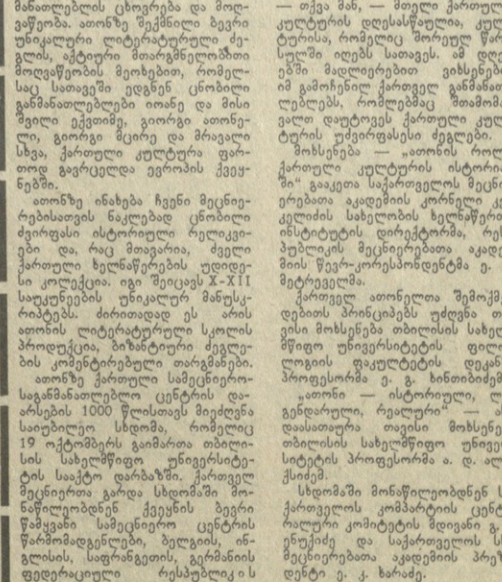 მანათლებლის ცხოვრება და მოღ-
ვაწეობა. ათონზე შექმნილი ბევრი
უნიკალური ლიტერატურული ძე-
გლის, აქტიური მთარგმნელობითი
მოღვაწეობის მეოხებით, რომელ-
საც სათავეში ედგნენ ცნობილი
განმანათლებლები იოანე და მისი
შვილი ექვთიმე, გიორგი ათონე-
ლი, გიორგი მცირე და მრავალი
სხვა, ქართული კულტურა ფარ-
თოდ გავრცელდა ევროპის ქვეყ-
ნებში.
ათონზე ინახება ჩვენი მეცნიე-
რებისათვის ნაკლებად ცნობილი
ძვირფასი ისტორიული რელიკვი-
ები და, რაც მთავარია, ძველი
ქართული ხელნაწერების უდიდე-
სი კოლექცია. იგი შეიცავს X-XII
საუკუნეების უნიკალურ მანუსკ-
რიპტებს. ძირითადად ეს არის
ათონის ლიტერატურული სკოლის
პროდუქცია, ბიზანტიური ძეგლე-
ბის კომენტირებული თარგმანები.
ათონზე ქართული სამეცნიერო-
საგანმანათლებლო ცენტრის და-
არსების 1000 წლისთავს მიეძღვნა
საიუბილეო სხდომა, რომელიც
19 ოქტომბერს გაიმართა თბილი-
სის სახელმწიფო უნივერსიტე-
ტის სააქტო დარბაზში. ქართველ
მეცნიერთა გარდა სხდომაში მო-
ნაწილეობდნენ ქვეყნის ბევრი
წამყვანი სამეცნიერო ცენტრის
წარმომადგენლები, ბელგიის, ინ-
გლისის, საფრანგეთის, გერმანიის
ფედერაციული რესპუბლიკის
— თქვა მან, — მთელი ქართულ
კულტურის დღესასწაულია, კულ
ტურისა, რომელიც შორეულ წარ
სულში იღებს სათავეს. ამ დღე
ებში მადლიერებით ვიხსენებ
იმ გამოჩენილ ქართველ განმანათ
ლებლებს, რომლებმაც შთამომა
ვალთ დაუტოვეს ქართული კულ
ტურის უძვირფასესი ძეგლები.
მოხსენება — „ათონის როლ
ქართული კულტურის ისტორია
ში“ გააკეთა საქართველოს მეცნი
ერებათა აკადემიის კორნელი კე
კელიძის სახელობის ხელნაწერთ
ინსტიტუტის დირექტორმა, რეს
პუბლიკის მეცნიერებათა აკადე
მიის წევრ-კორესპონდენტმა ე.
მეტრეველმა.
ქართველ ათონელთა შემოქმე
დებით პრინციპებს უძღვნა თა
ვისი მოხსენება თბილისის სახელ
მწიფო უნივერსიტეტის ფილო
ლოგიის ფაკულტეტის დეკანმ
პროფესორმა ე. გ. ხინთიბიძემ.
„ათონი — ისტორიული, ლე
გენდარული, რეალური“ — ა
დაასათაურა თავისი მოხსენებ
თბილისის სახელმწიფო უნივერ
სიტეტის პროფესორმა ა. დ. ალე
ქსიძემ.
სხდომაში მონაწილეობდნენ ს
ქართველოს კომპარტიის ცენტ
რალური კომიტეტის მდივანი გ.
ენუქიძე და საქართველოს სს
მეცნიერებათა აკადემიის პრეზი
დენტი ე. კ. ხარაძე.